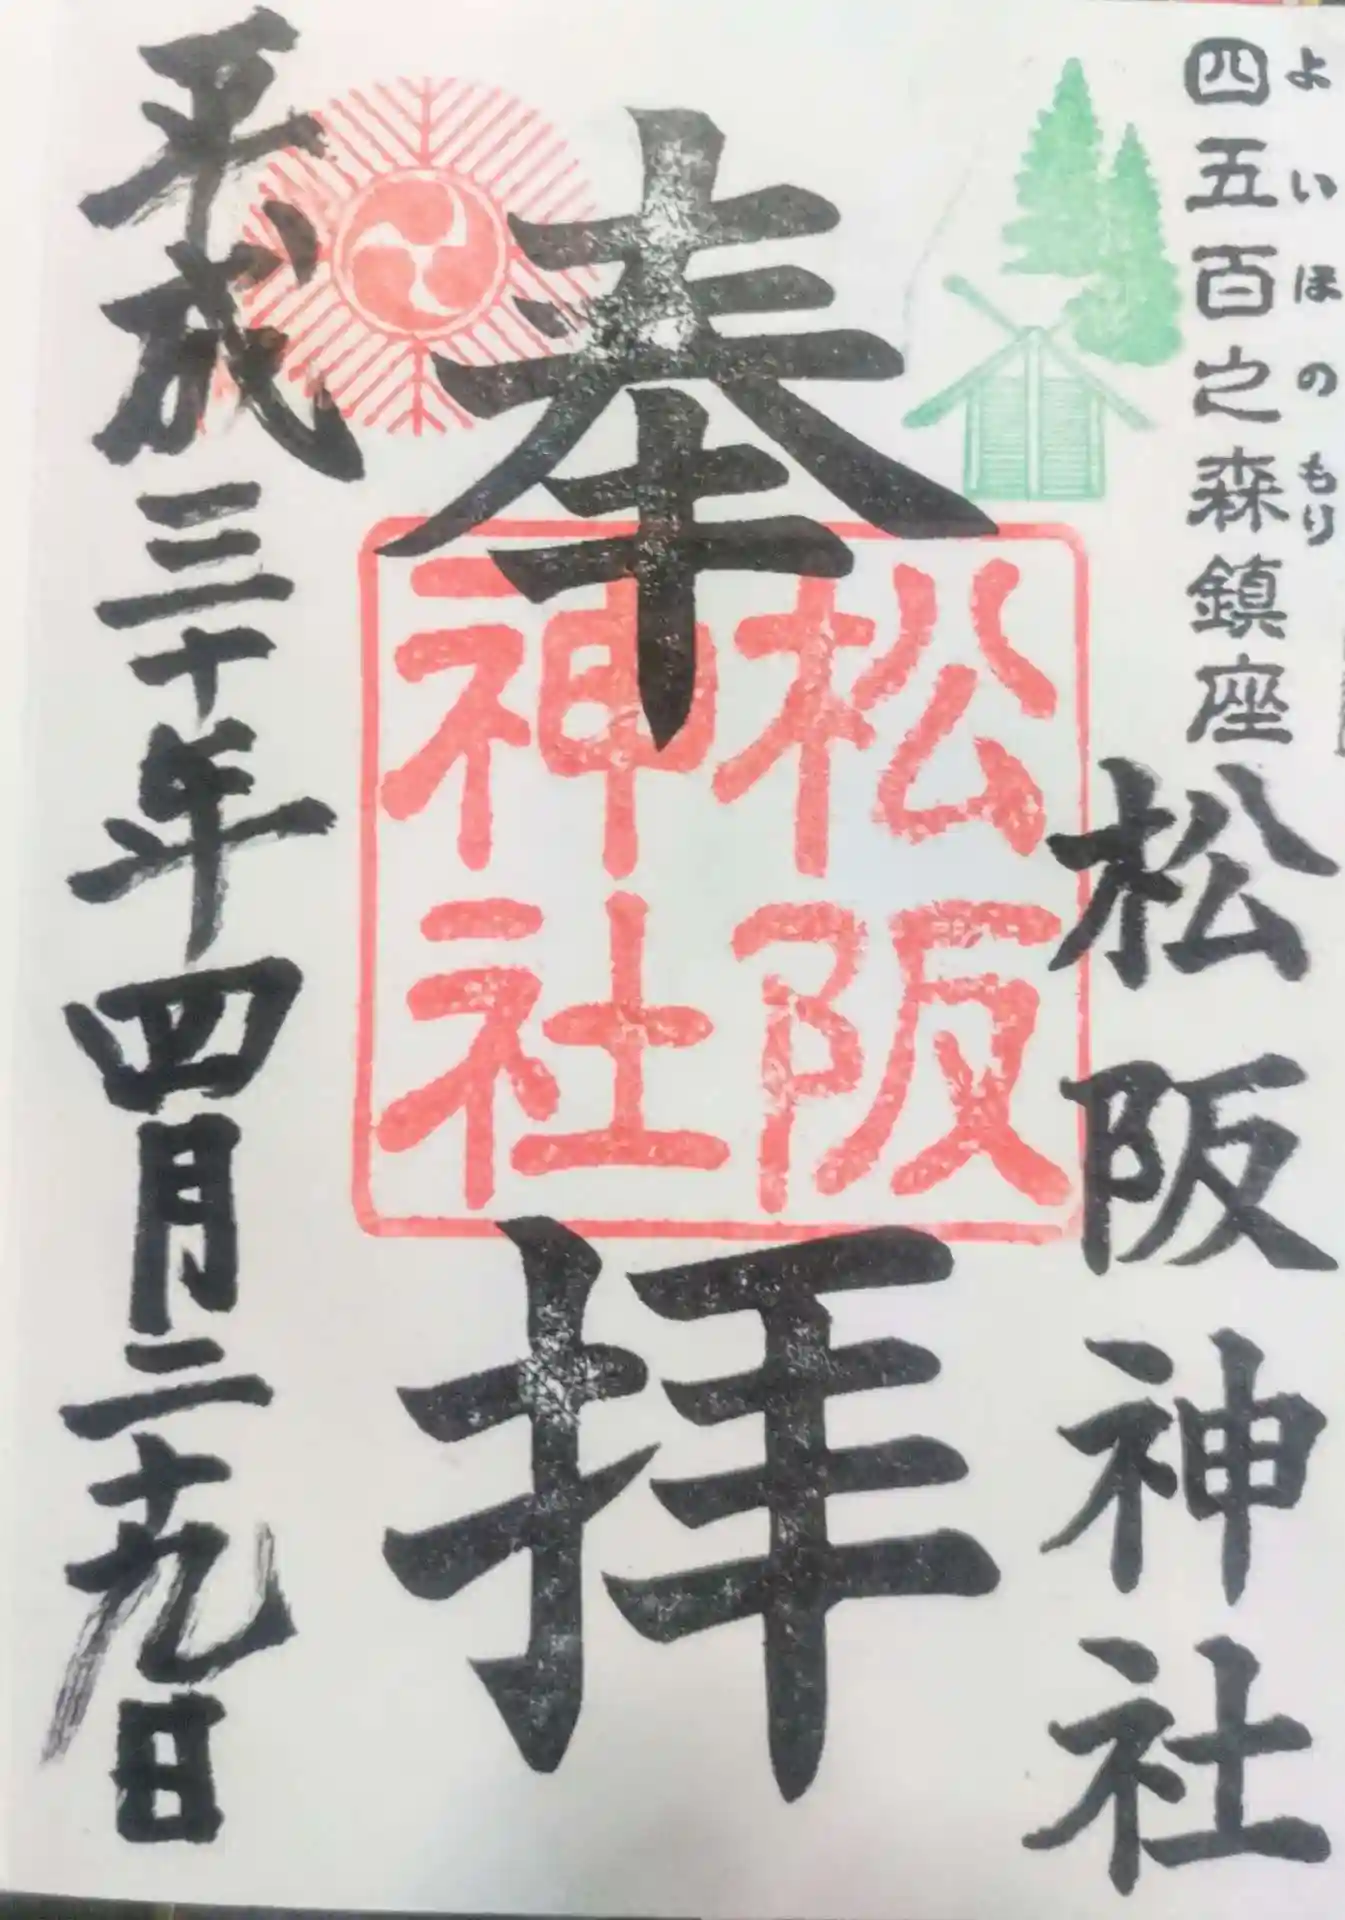 四五百之森鎮座
よいほのもり
松阪神社
奉拝
松阪
神社
平成三十年四月二十九日